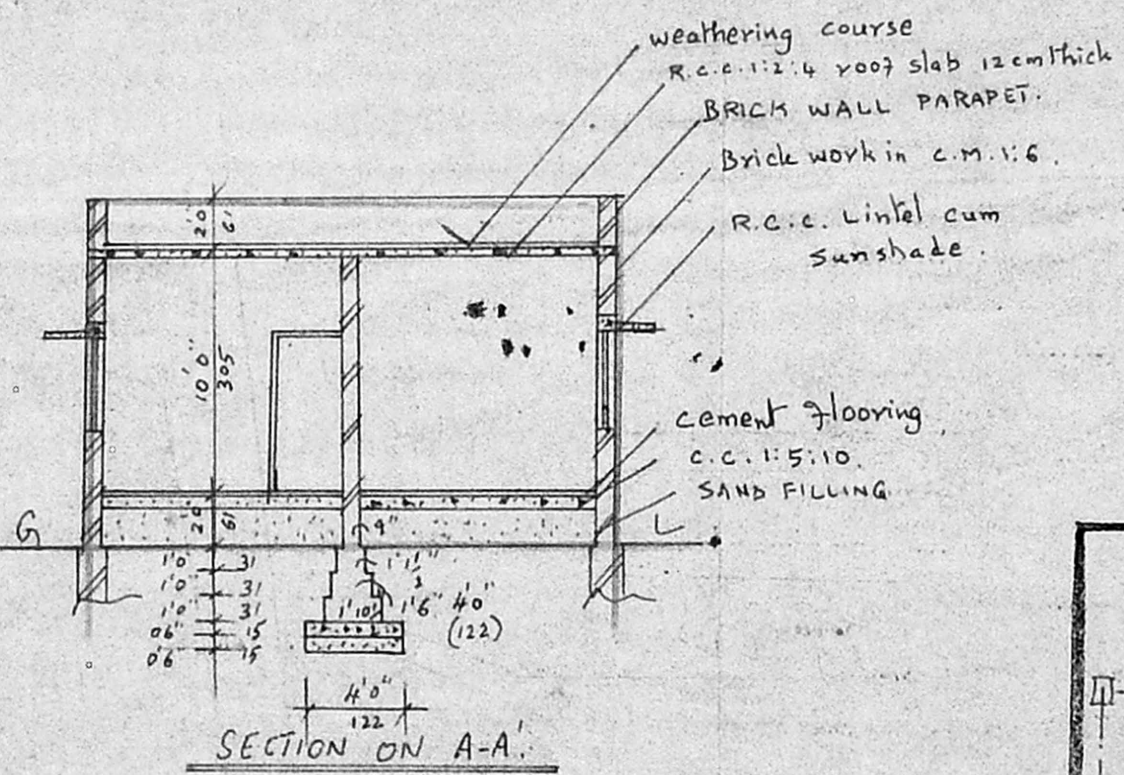 weathering course
R.C.C. 1:2:4 roof slab 12 cm thick
BRICK WALL PARAPET.
Brick work in C.M. 1:6.
R.C.C. Lintel cum
sunshade.
2'0"
61
10'0"
305
cement flooring
C.C. 1:5:10.
SAND FILLING
2'0"
61
9"
G
L
1'0" 31
1'0" 31
1'0" 31
06" 15
0'6 15
1'6"
1'10"
4'0"
(122)
4'0"
122
SECTION ON A-A'.